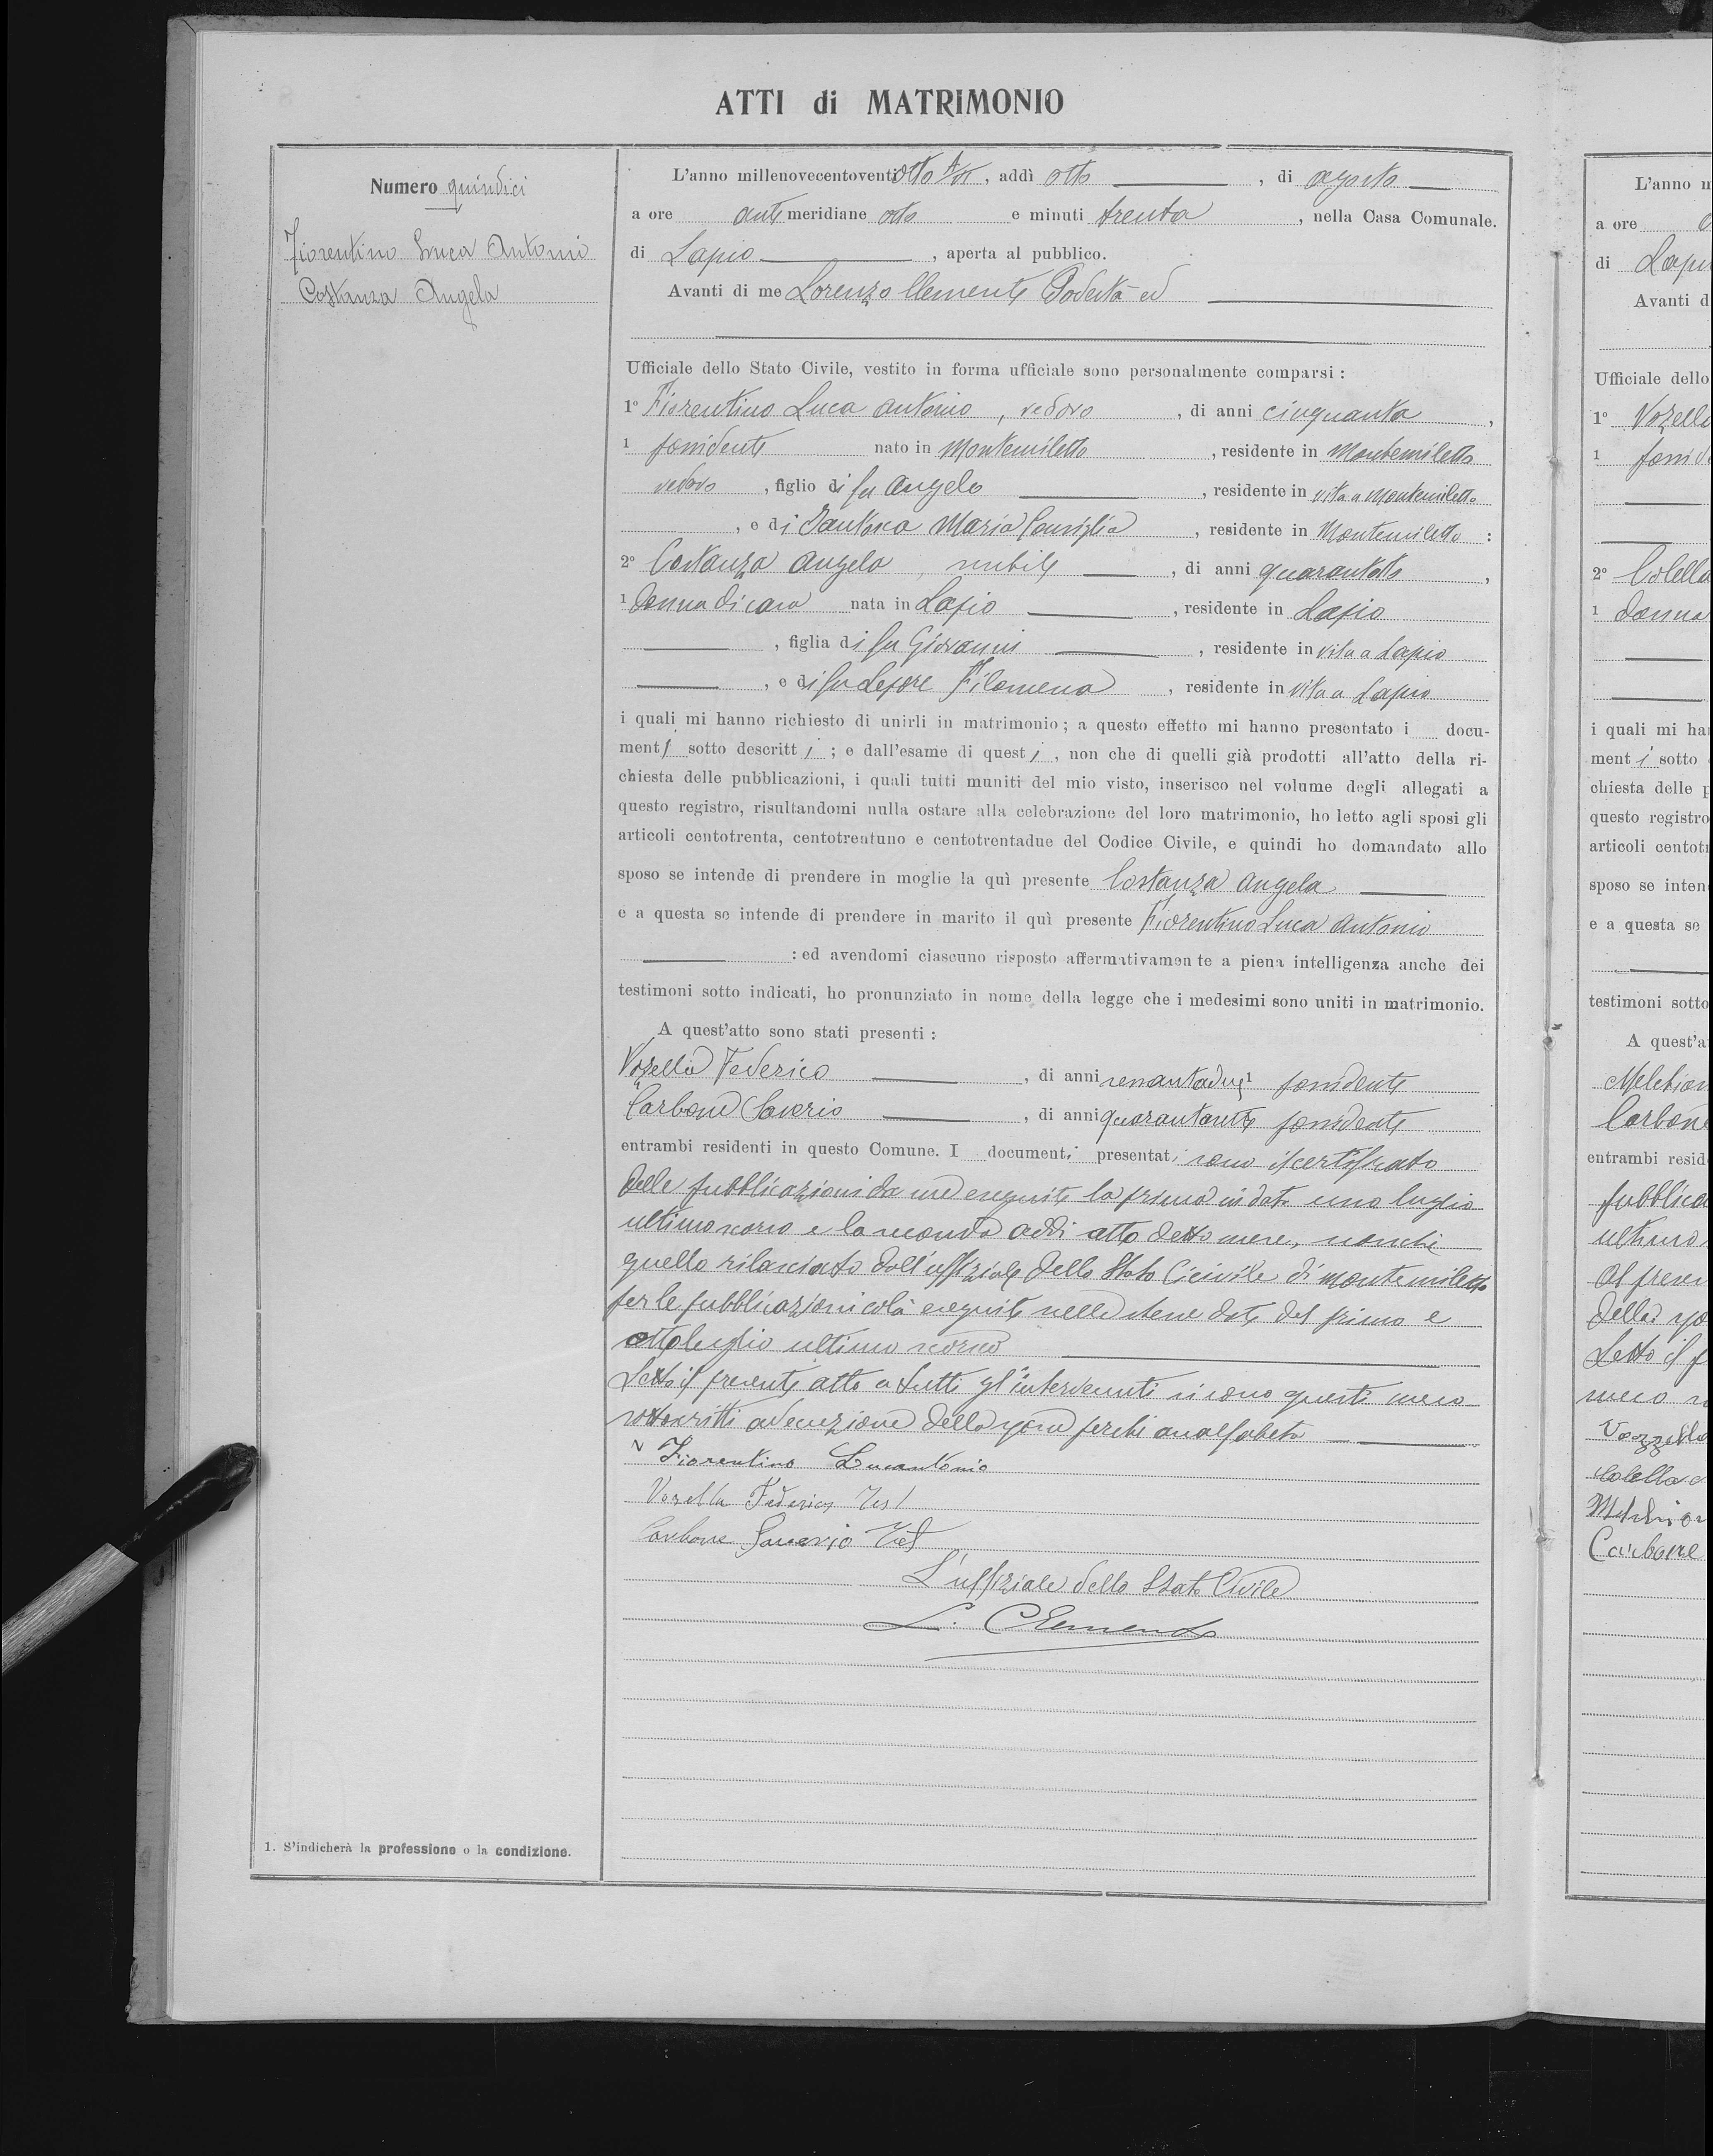 ATTI di MATRIMONIO
Numero quindici
Fiorentino Luca Antonio
Costanza Angela
L'anno millenovecentoventiotto A/VI, addì otto, di agosto
a ore antimeridiane otto e minuti trenta, nella Casa Comunale.
di Lapio, aperta al pubblico.
Avanti di me Lorenzo Clemente Podestà ed
Ufficiale dello Stato Civile, vestito in forma ufficiale sono personalmente comparsi :
1º Fiorentino Luca Antonio, vedovo, di anni cinquanta,
1 possidente nato in Montemiletto, residente in Montemiletto
vedovo, figlio di fu Angelo, residente in vita a Montemiletto
, e di Maria Consiglia, residente in Montemiletto :
2º Costanza Angela, nubile, di anni quarantotto,
1 Donna di casa nata in Lapio, residente in Lapio
, figlia di fu Giovanni, residente in vita a Lapio
, e di fu Lepore Filomena, residente in vita a Lapio
i quali mi hanno richiesto di unirli in matrimonio ; a questo effetto mi hanno presentato i docu-
menti sotto descritti ; e dall'esame di questi, non che di quelli già prodotti all'atto della ri-
chiesta delle pubblicazioni, i quali tutti muniti del mio visto, inserisco nel volume degli allegati a
questo registro, risultandomi nulla ostare alla celebrazione del loro matrimonio, ho letto agli sposi gli
articoli centotrenta, centotrentuno e centotrentadue del Codice Civile, e quindi ho domandato allo
sposo se intende di prendere in moglie la quì presente Costanza Angela
e a questa se intende di prendere in marito il quì presente Fiorentino Luca Antonio
: ed avendomi ciascuno risposto affermativamente a piena intelligenza anche dei
testimoni sotto indicati, ho pronunziato in nome della legge che i medesimi sono uniti in matrimonio.
A quest'atto sono stati presenti :
Vozella Federico, di anni sessantadue 1 possidente
Carbone Saverio, di anni possidente
entrambi residenti in questo Comune. I documenti presentati sono il certificato
delle pubblicazioni da me eseguite la prima in data uno luglio
ultimo scorso e la seconda addì otto detto mese, nonchè
quello rilasciato dall'uffiziale dello Stato Cicivile di Montemiletto
per le pubblicazioni colà eseguite nelle stesse date del primo e
otto luglio ultimo scorso
Letto il presente atto a tutti gl'intervenuti si sono questi meco
sottoscritti ad eccezione della sposa perchè analfabeta
Fiorentino Lucantonio
Vozella Federico Test
Carbone Saverio Test
L'uffiziale dello Stato Civile
L. Clemente
1. S'indicherà la professione o la condizione.
L'anno m
a ore
di Lapio
Avanti d
Ufficiale dello
1º Vozella
1 possid
2º Colella
1 donna
i quali mi han
menti sotto
chiesta delle p
questo registro
articoli centotr
sposo se inten
e a questa se
testimoni sotto
A quest'a
Melchion
Carbone
entrambi resid
pubblica
ultimo
Al presen
della spo
Letto il p
meco
Vozzella
Colella
Melchior
Carbone